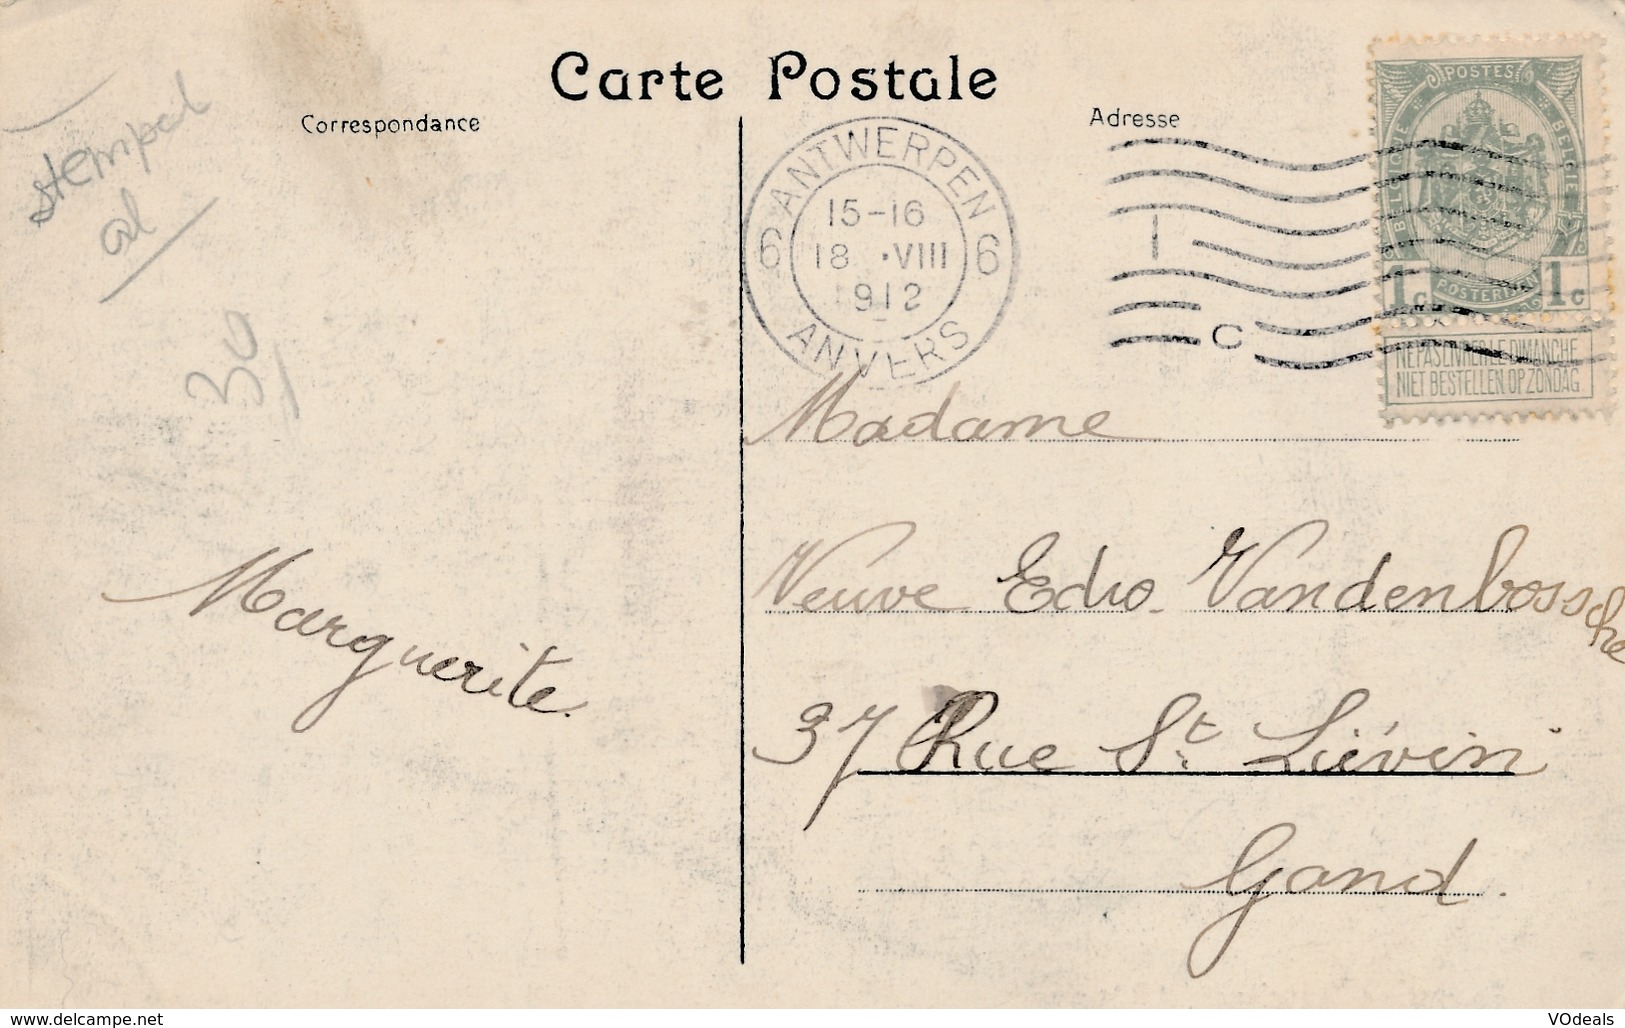 Carte Postale
Correspondance
Adresse
stempel
al
30
ANTWERPEN
15-16
18 .VIII
912
6 6
ANVERS
1
C
POSTES
BELGIQUE
BELGIË
POSTERIJEN
1c 1c
NE PAS LIVRER LE DIMANCHE
NIET BESTELLEN OP ZONDAG
Madame
Veuve Edw. Vandenbossche
37 Rue St. Liévin
Gand.
Marguerite.
www.delcampe.net
VOdeals